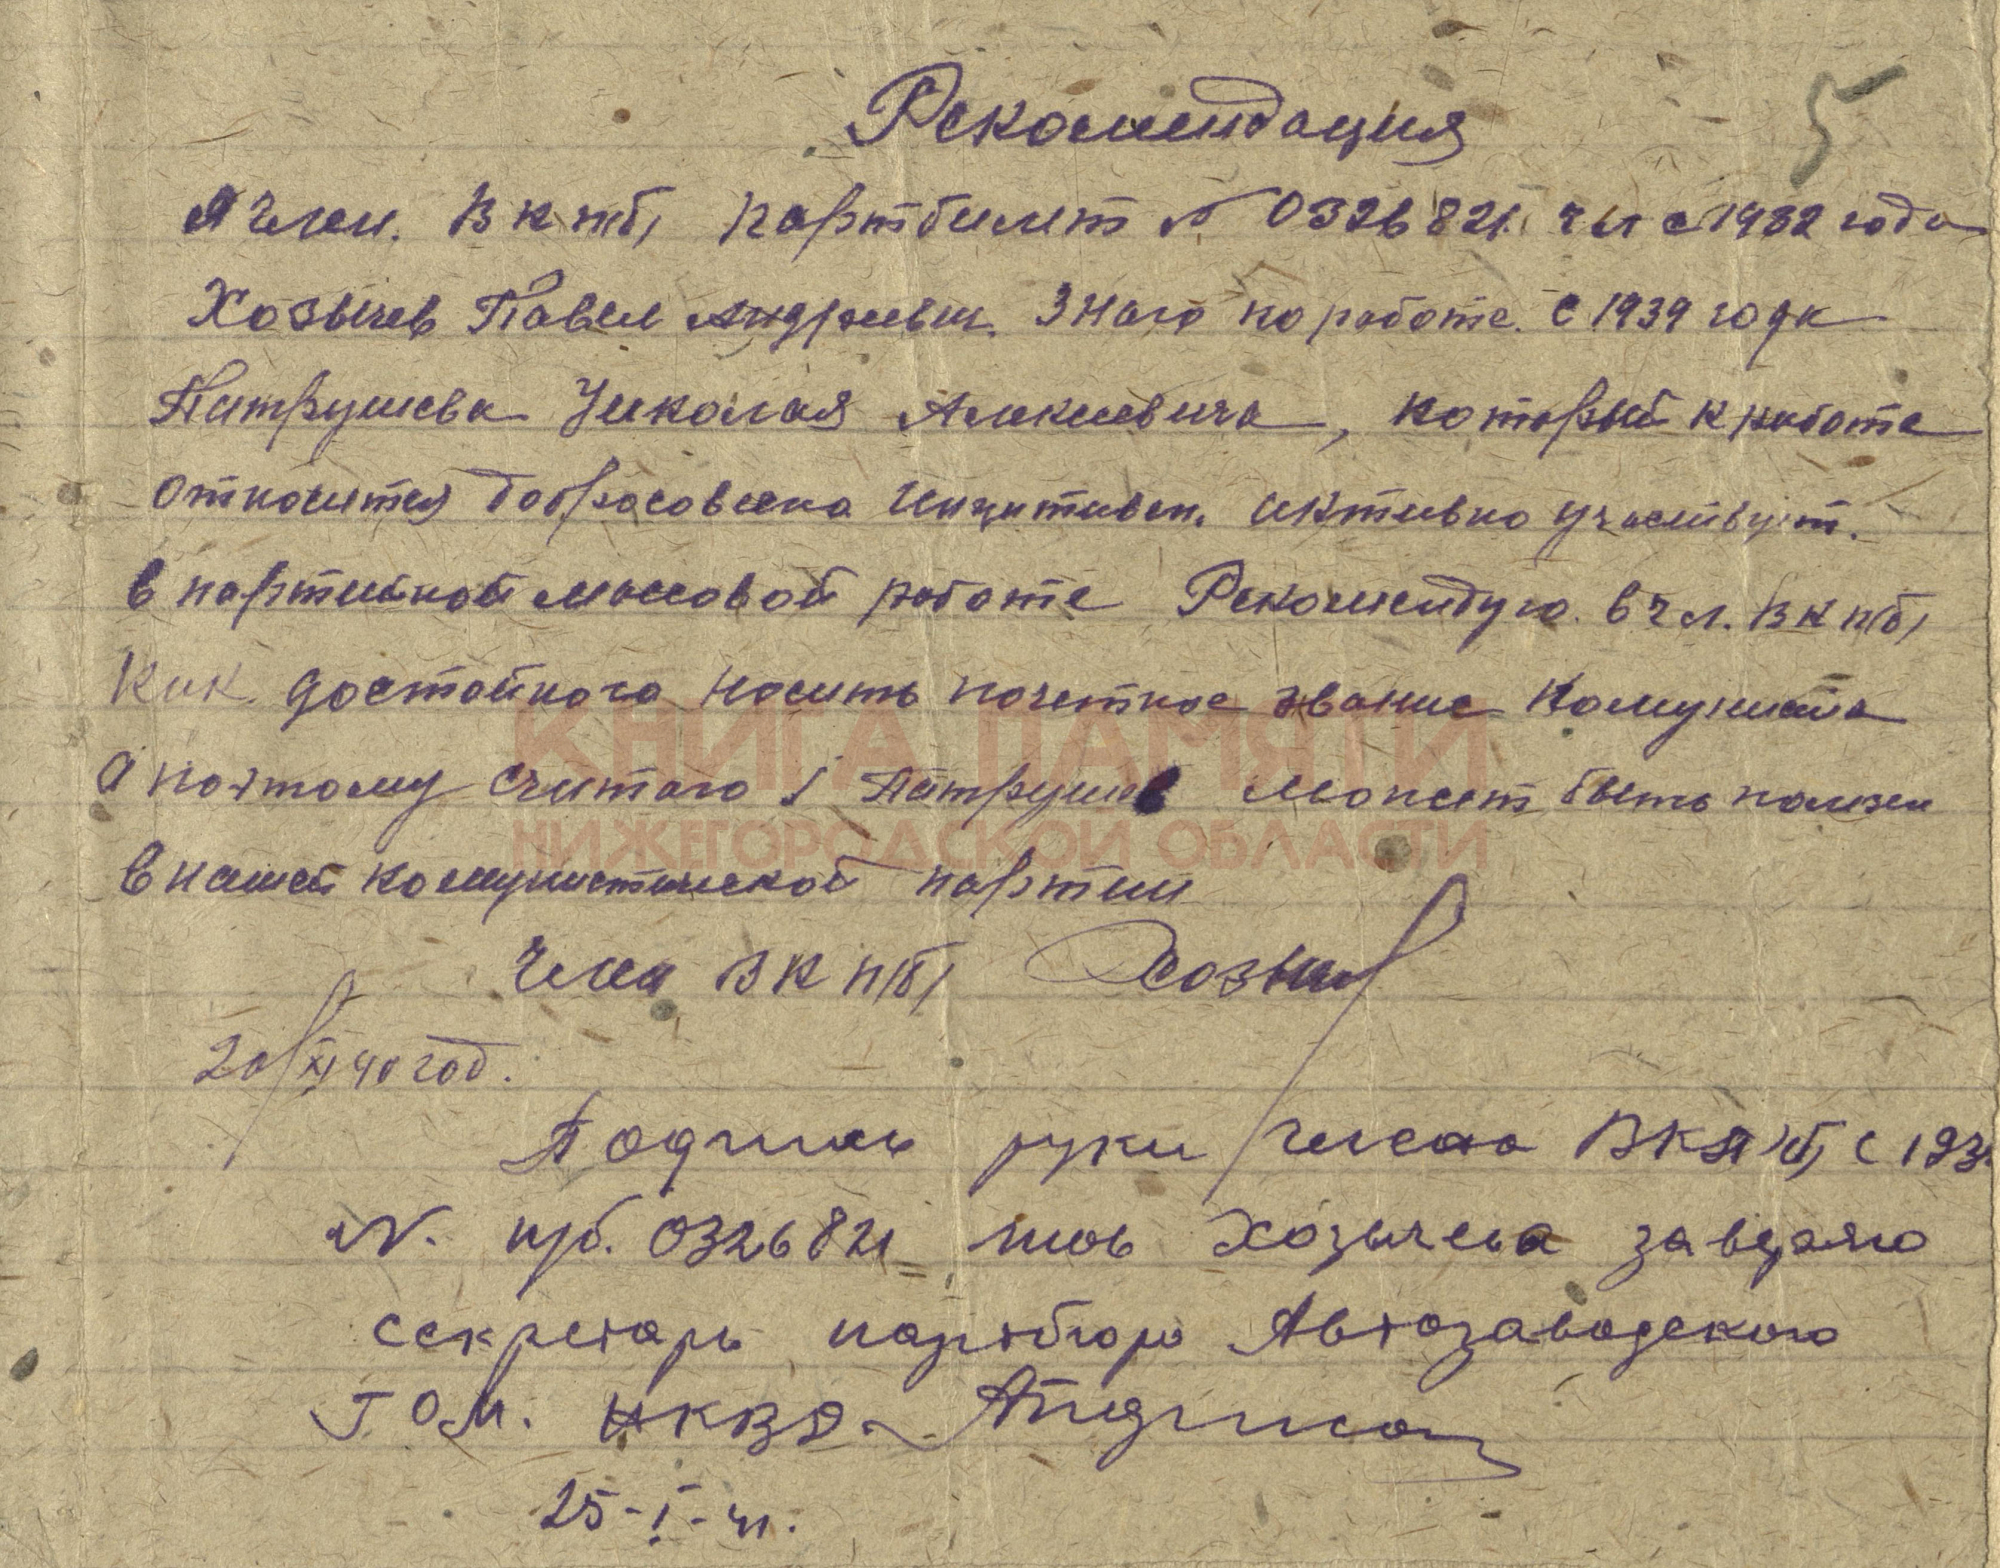 5
Рекомендация
Я член. ВКП(б) партбилет № 0326821. чл с 1932 года
Хозычев Павел Андреевич. Знаю по работе. с 1939 года
Патрушева Николая Алексеевича, который к работе
относится добросовесно активно участвует.
в партийной массовой работе Рекомендую. в чл. ВКП(б)
Как достойного носить почетное звание Комуниста
а поэтому считаю Патрушев может быть полезен
в нашей комунистической партии
Член ВКП(б)
20/XI 40 год.
Подпись руки члена ВКП(б) с 193
№. п/б. 0326821 тов Хозычева заверяю
секретарь партбюро Автозаводского
ГОМ. НКВД
25-I-41.
КНИГА ПАМЯТИ
НИЖЕГОРОДСКОЙ ОБЛАСТИ